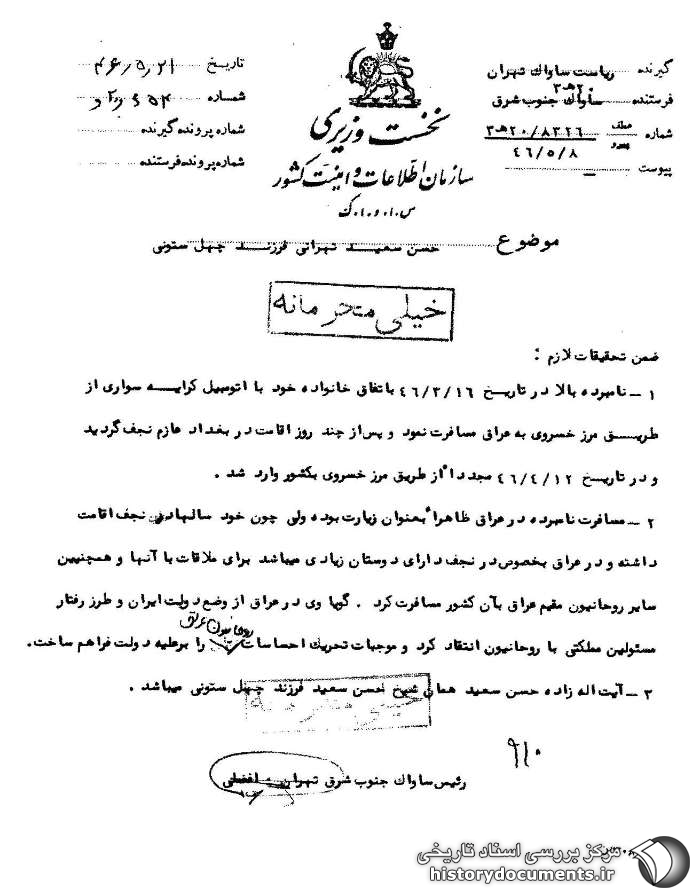 گیرنده ریاست ساواک تهران ۲۰هـ۳
فرستنده ساواک جنوب شرق
شماره عطف پیرو ۲۰/۸۳۲۶هـ۳
۴۶/۵/۸
پیوست ــ
نخست وزیری
سازمان اطلاعات و امنیت کشور
س.ا.و.ا.ک
تاریخ ۴۶/۵/۲۱
شماره
شماره پرونده گیرنده
شماره پرونده فرستنده
موضوع حسن سعید تهرانی فرزند چهل ستونی
خیلی محرمانه
ضمن تحقیقات لازم :
۱ ـ نامبرده بالا در تاریخ ۴۶/۳/۱۶ باتفاق خانواده خود با اتومبیل کرایه سواری از
طریق مرز خسروی به عراق مسافرت نمود و پس از چند روز اقامت در بغداد عازم نجف گردید
و در تاریخ ۴۶/۴/۱۲ مجدداً از طریق مرز خسروی بکشور وارد شد .
۲ ـ مسافرت نامبرده در عراق ظاهراً بعنوان زیارت بوده ولی چون خود سالها در نجف اقامت
داشته و در عراق بخصوص در نجف دارای دوستان زیادی میباشد برای ملاقات با آنها و همچنین
سایر روحانیون مقیم عراق بآن کشور مسافرت کرد . گویا وی در عراق از وضع دولت ایران و طرز رفتار
مسئولین مملکتی با روحانیون انتقاد کرد و موجبات تحریک احساسات روحانیون عراق را بر علیه دولت فراهم ساخت .
۳ ـ آیت اله زاده حسن سعید همان شیخ حسن سعید فرزند چهل ستونی میباشد .
خیلی محرمانه
رئیس ساواک جنوب شرق تهران ـ افضلی
مرکز بررسی اسناد تاریخی
historydocuments.ir